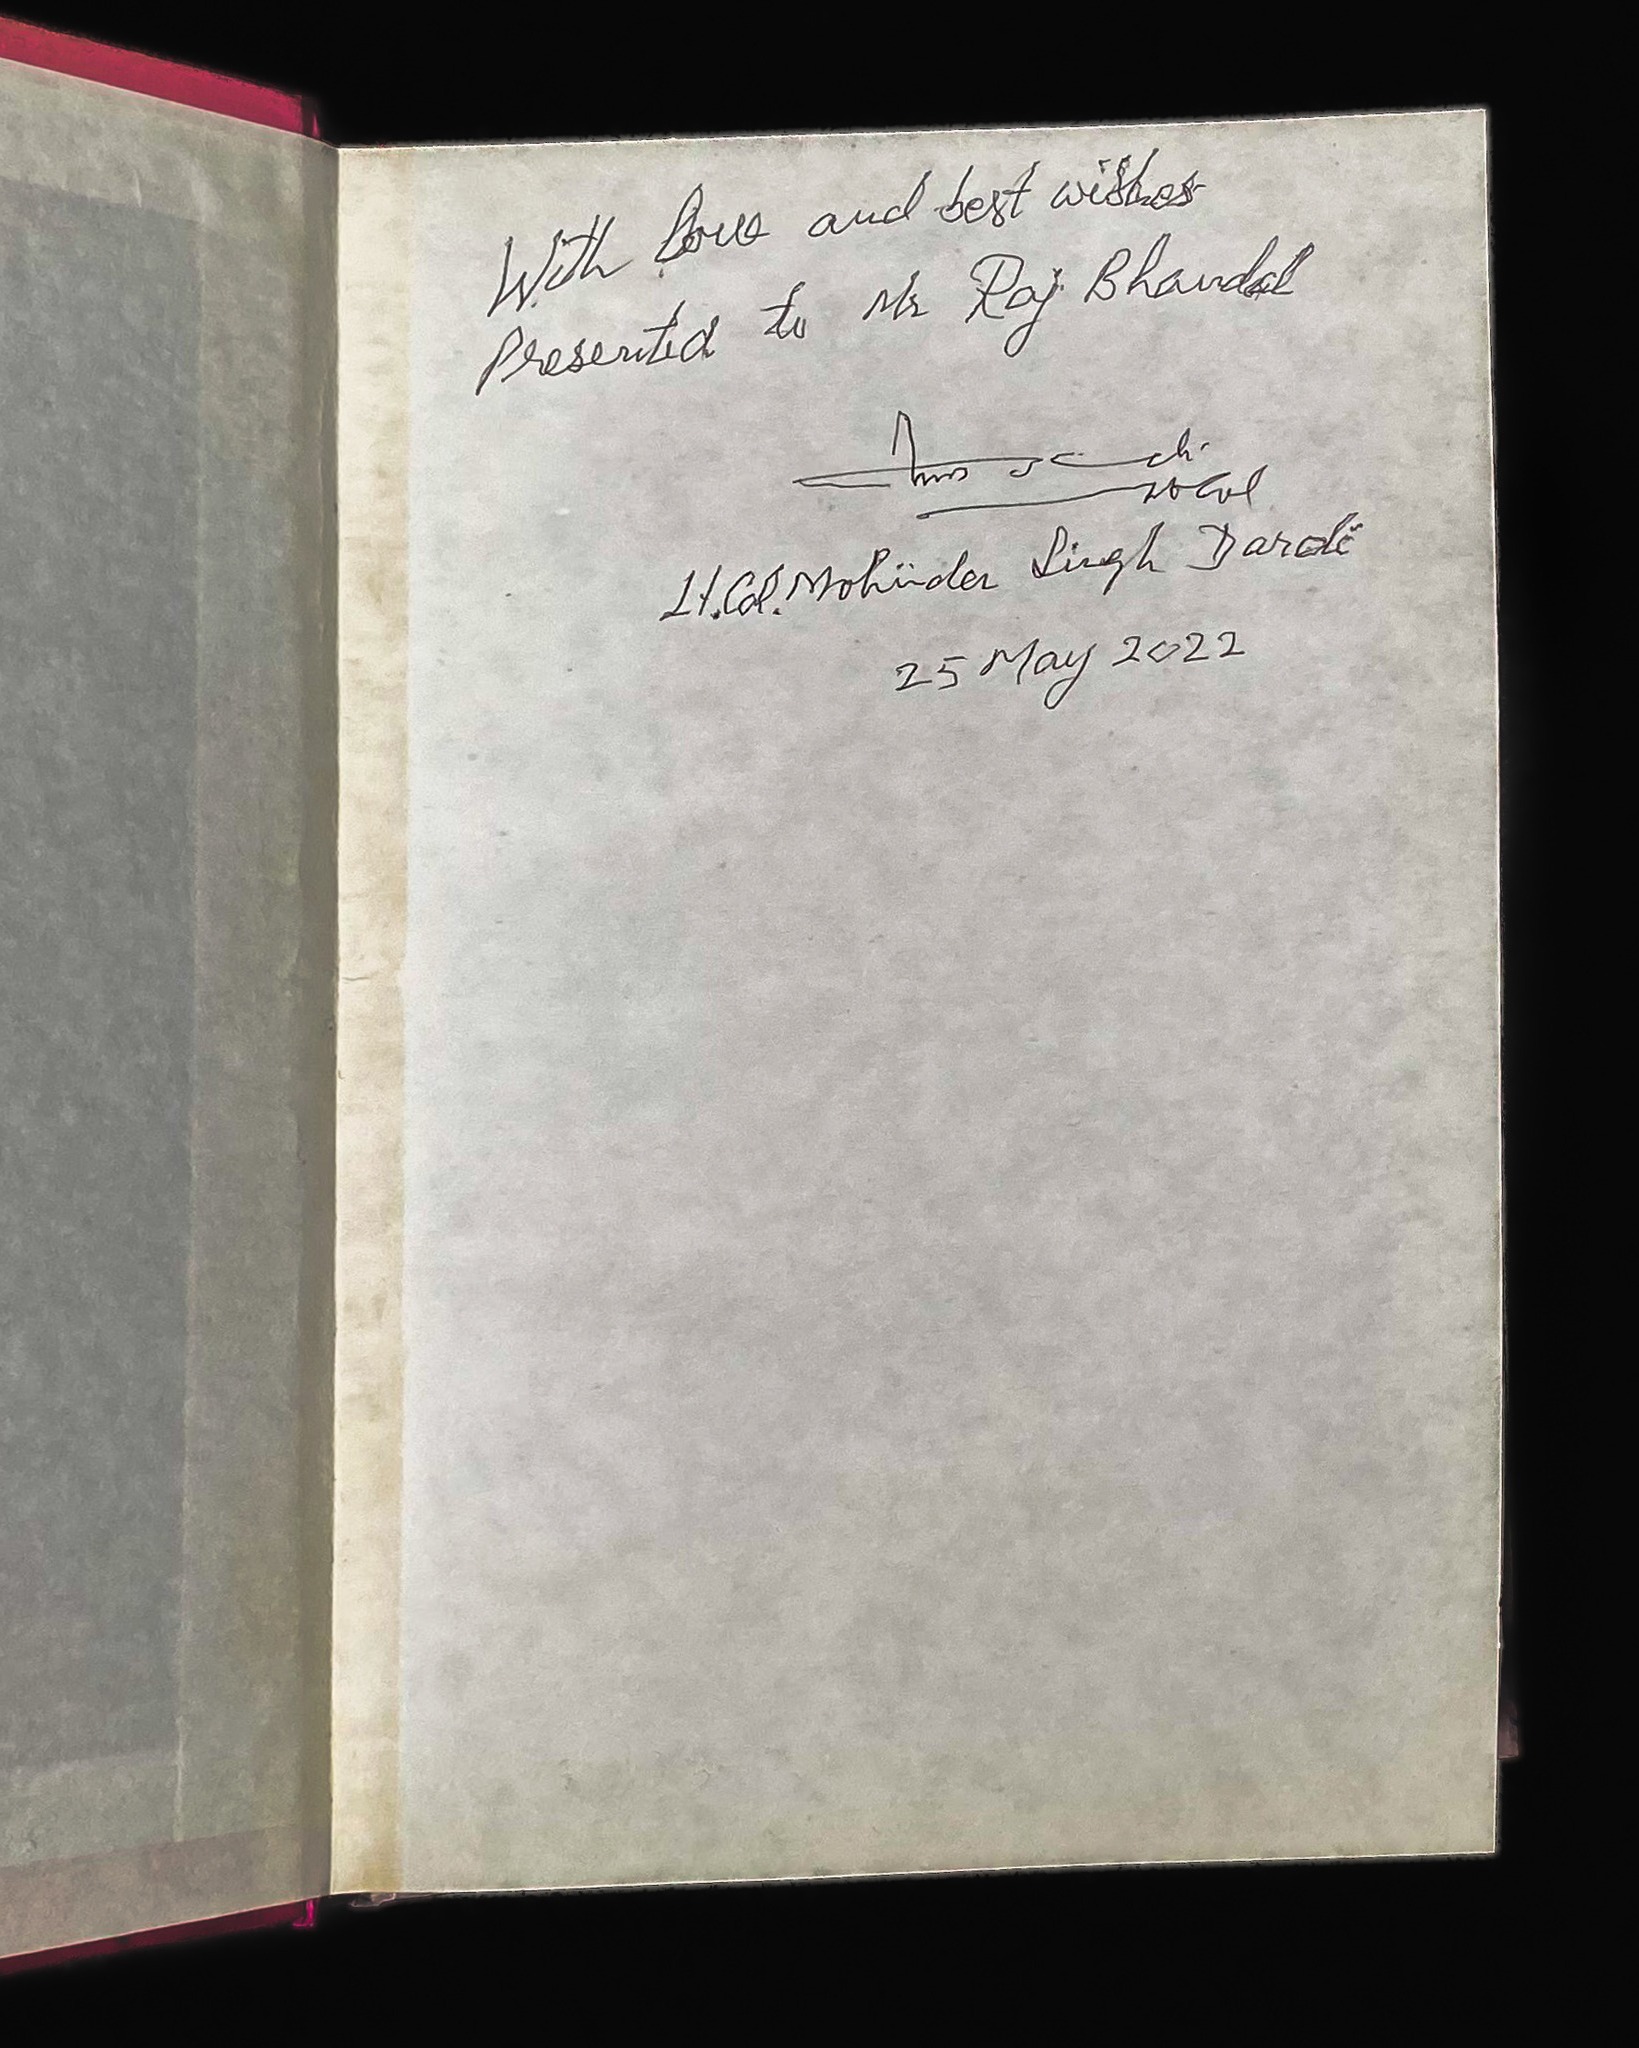 With love and best wishes
Presented to Mr Raj Bhandal
Lt Col
Lt.Col. Mohinder Singh Daroli
25 May 2022